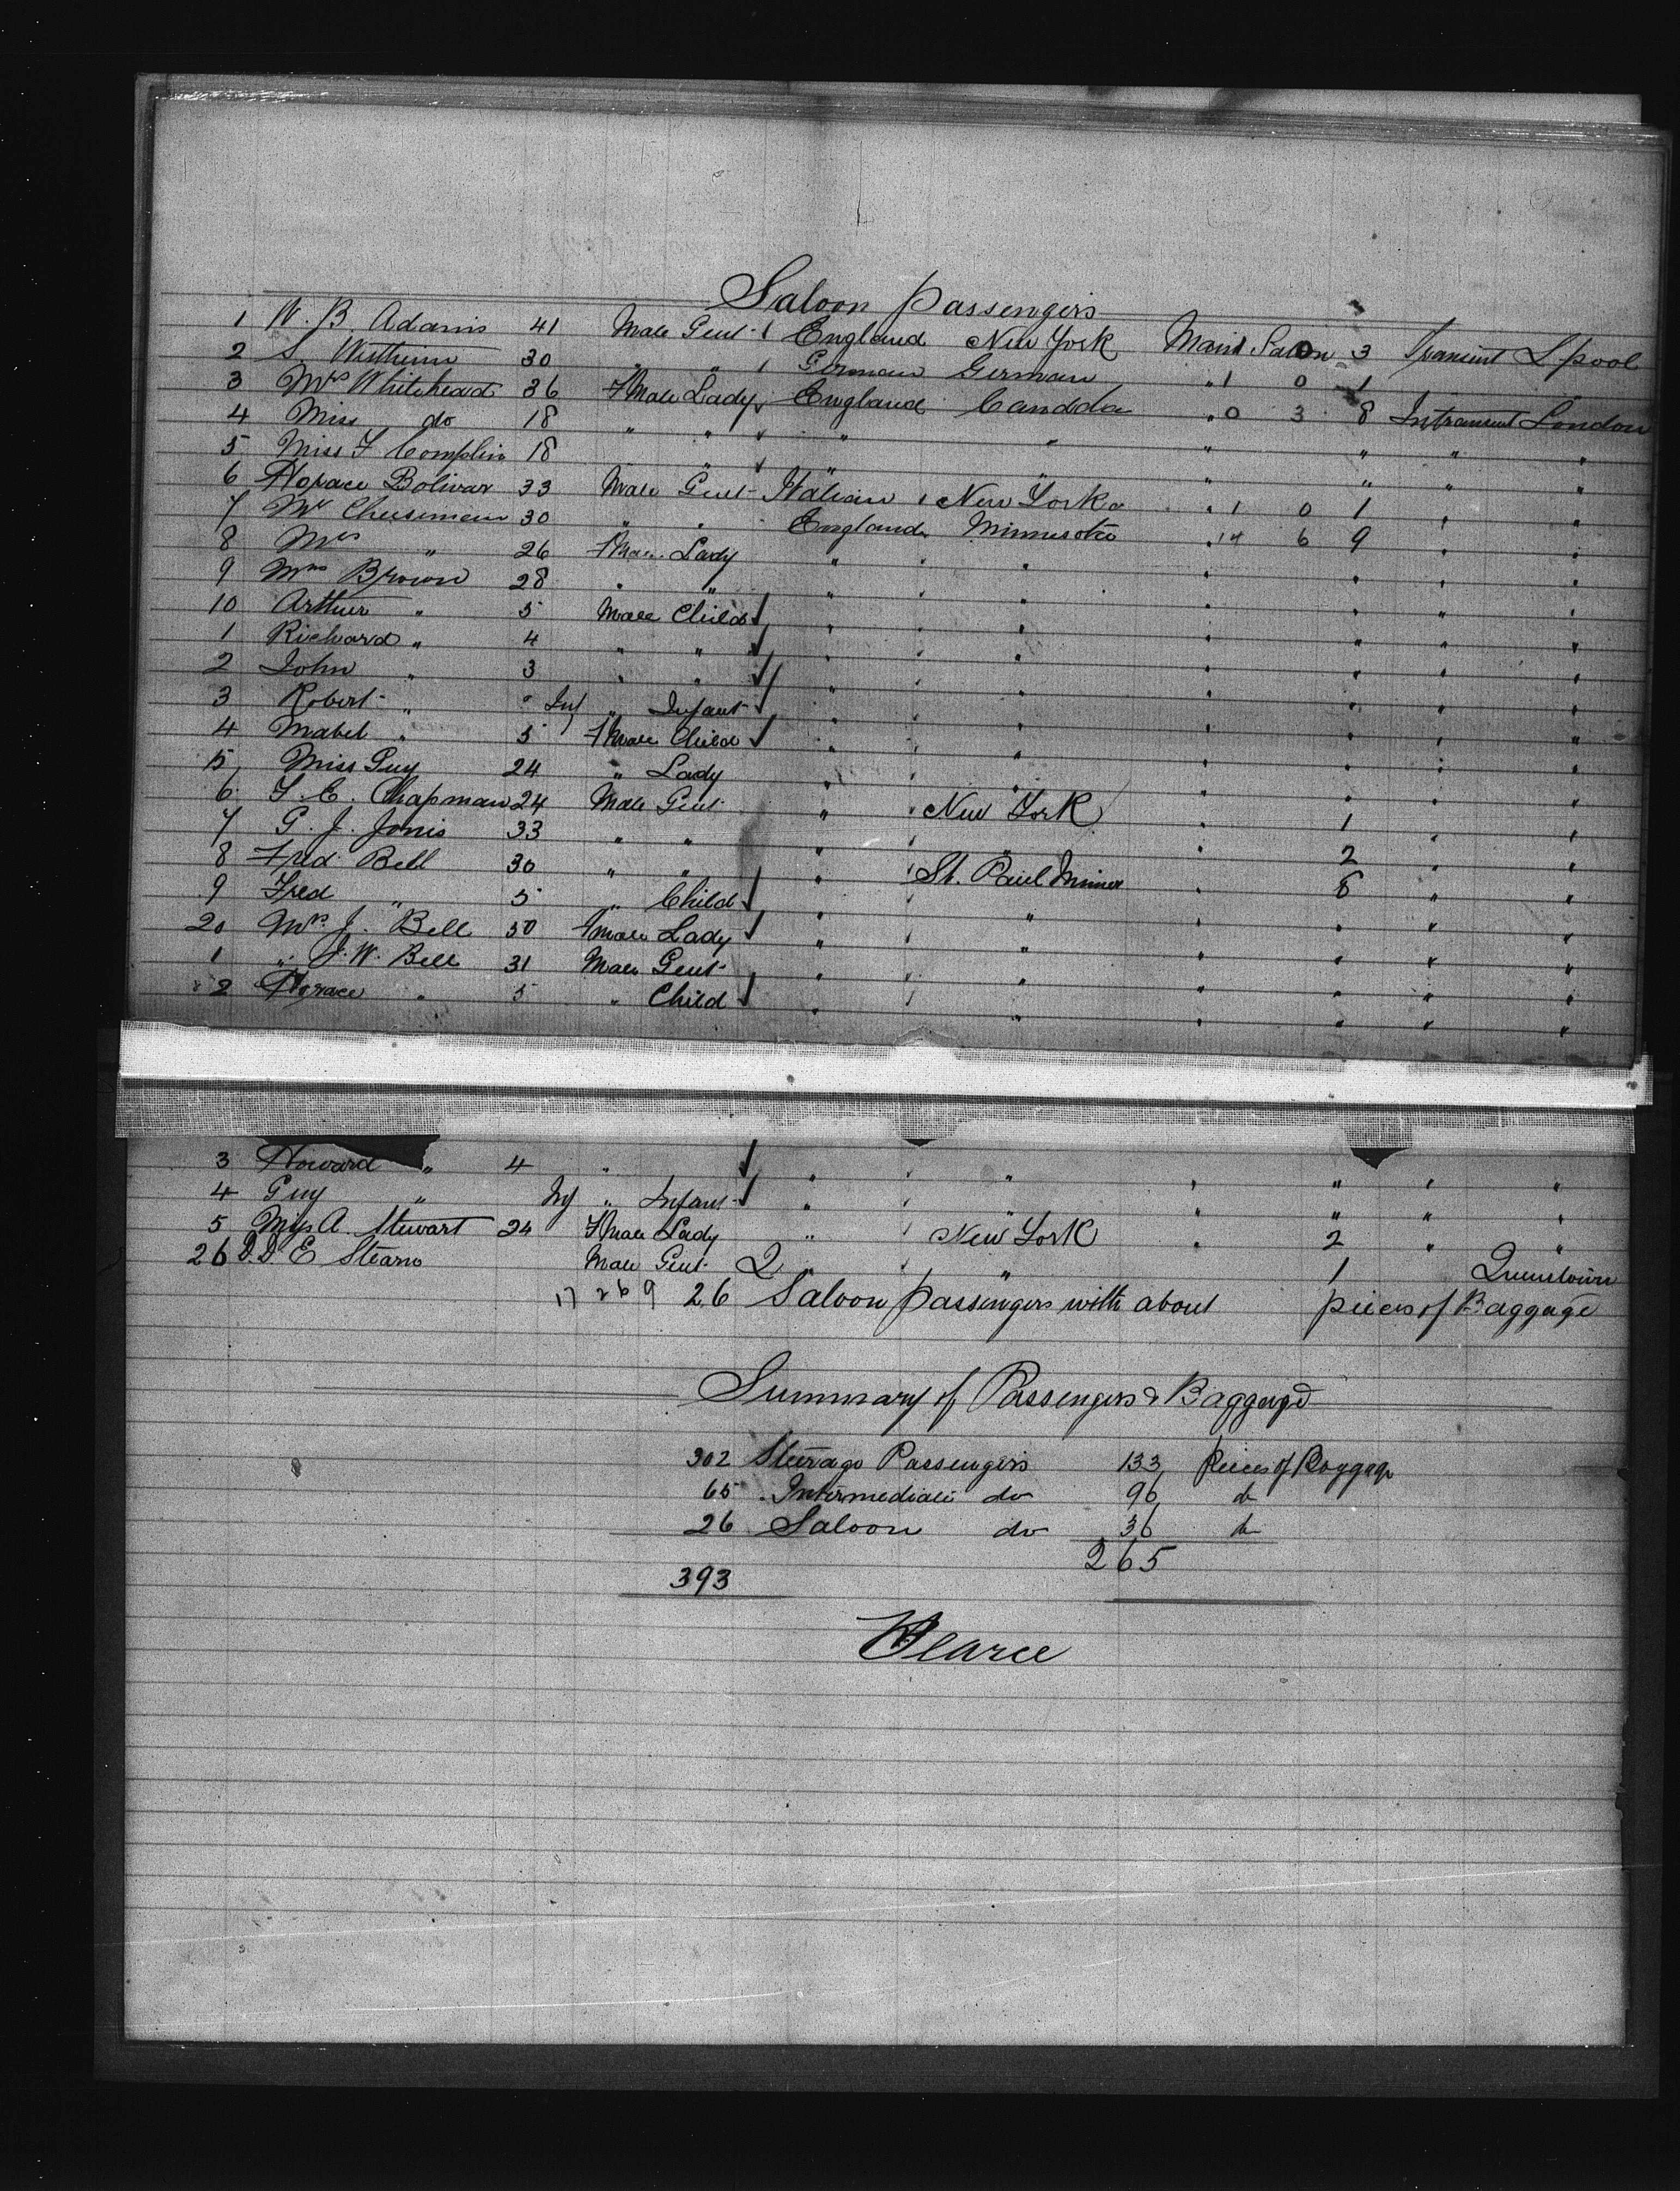 Saloon Passengers
1 W. B. Adams 41 Male Gent England New York Main Saloon 0 3 Transient L'pool
2 S. 30 " " German German " 1 0 1
3 Mrs Whitehead 36 Fmale Lady England Canada " 0 3 8 Intransient London
4 Miss do 18 " " " " " " " "
5 Miss F Complin 18 " " " " " " "
6 Horace Bolivar 33 Male Gent Italian New York " 1 0 1 " "
7 Mr Cheeseman 30 " " England Minnesota " 14 6 9 " "
8 Mrs " 26 Fmale Lady " " " " " "
9 Mrs Brown 28 " " " " " " " "
10 Arthur " 5 Male Child " " " " " "
1 Richard " 4 " " " " " " " "
2 John " 3 " " " " " " " "
3 Robert " Inf " Infant " " " " " "
4 Mabel " 5 Fmale Child " " " " " "
15 Miss Guy 24 " Lady " " " " " "
6 F. C. Chapman 24 Male Gent " New York " 1 " "
7 G. J. Jonis 33 " " " " " 2 " "
8 Fred Bell 30 " " " St. Paul Minnes " 8 " "
9 Fred " 5 " Child " " " " " "
20 Mrs J. Bell 50 Fmale Lady " " " " " "
1 " J. W. Bell 31 Male Gent " " " " " "
2 Horace " 5 " Child " " " " " "
3 Howard " 4 " " " " " " "
4 Guy " Inf " Infant " " " " " "
5 Mrs A. Stewart 24 Fmale Lady " New York " 2 " "
26 D. D. E Stearns Male Gent 2 " " 1 Queenstown
17 26 9 26 Saloon Passengers with about pieces of Baggage
Summary of Passengers & Baggage
302 Steerage Passengers 133 Pieces of Baggage
65 Intermediate do 96 do
26 Saloon do 36 do
393 265
W Pearce